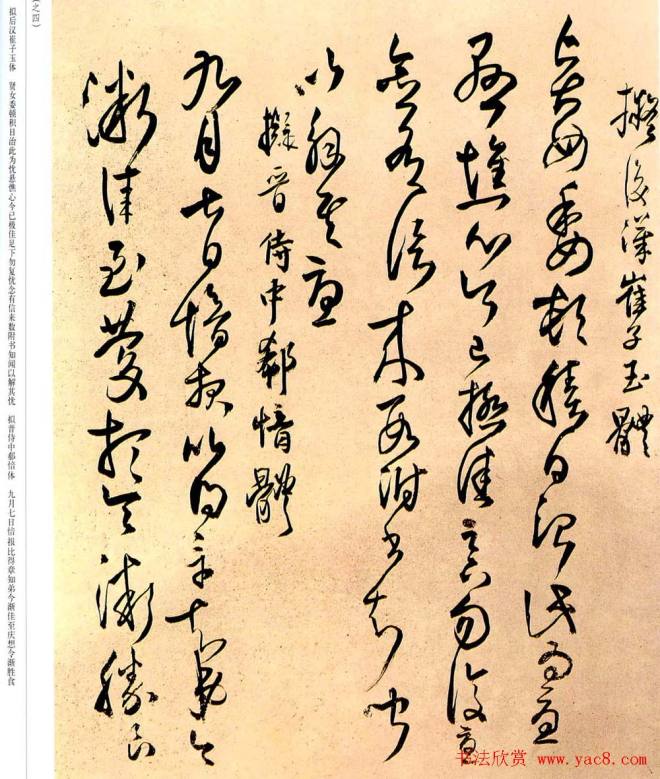 擬後漢崔子玉體
賢女委頓積日治此為憂
懸憔心今已極佳足下勿復憂
念有信来數附書知聞
以解其憂
擬晉侍中郗愔體
九月七日愔报比得章知弟今
漸佳至慶想今漸勝食
(之四)
拟后汉崔子玉体 贤女委顿积日治此为忧悬憔心今已极佳足下勿复忧念有信来数附书知闻以解其忧 拟晋侍中郗愔体 九月七日愔报比得章知弟今渐佳至庆想今渐胜食
书法欣赏 www.yac8.com